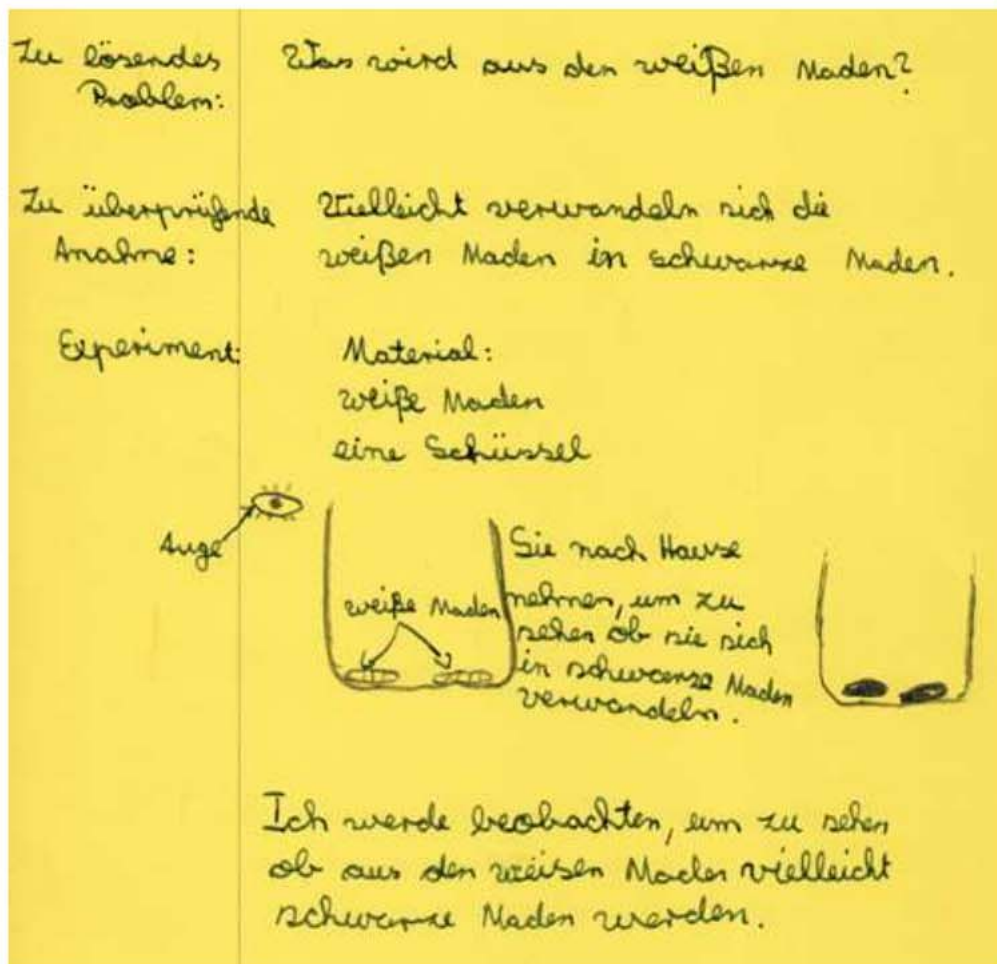 Zu lösendes Problem:
Was wird aus den weißen Maden?
Zu überprüfende Anahme:
Vielleicht verwandeln sich die
weißen Maden in schwarze Maden.
Experiment:
Material:
weiße Maden
eine Schüssel
Auge
weiße Maden
Sie nach Hause
nehmen, um zu
sehen ob sie sich
in schwarze Maden
verwandeln.
Ich werde beobachten, um zu sehen
ob aus den weisen Maden vielleicht
schwarze Maden werden.